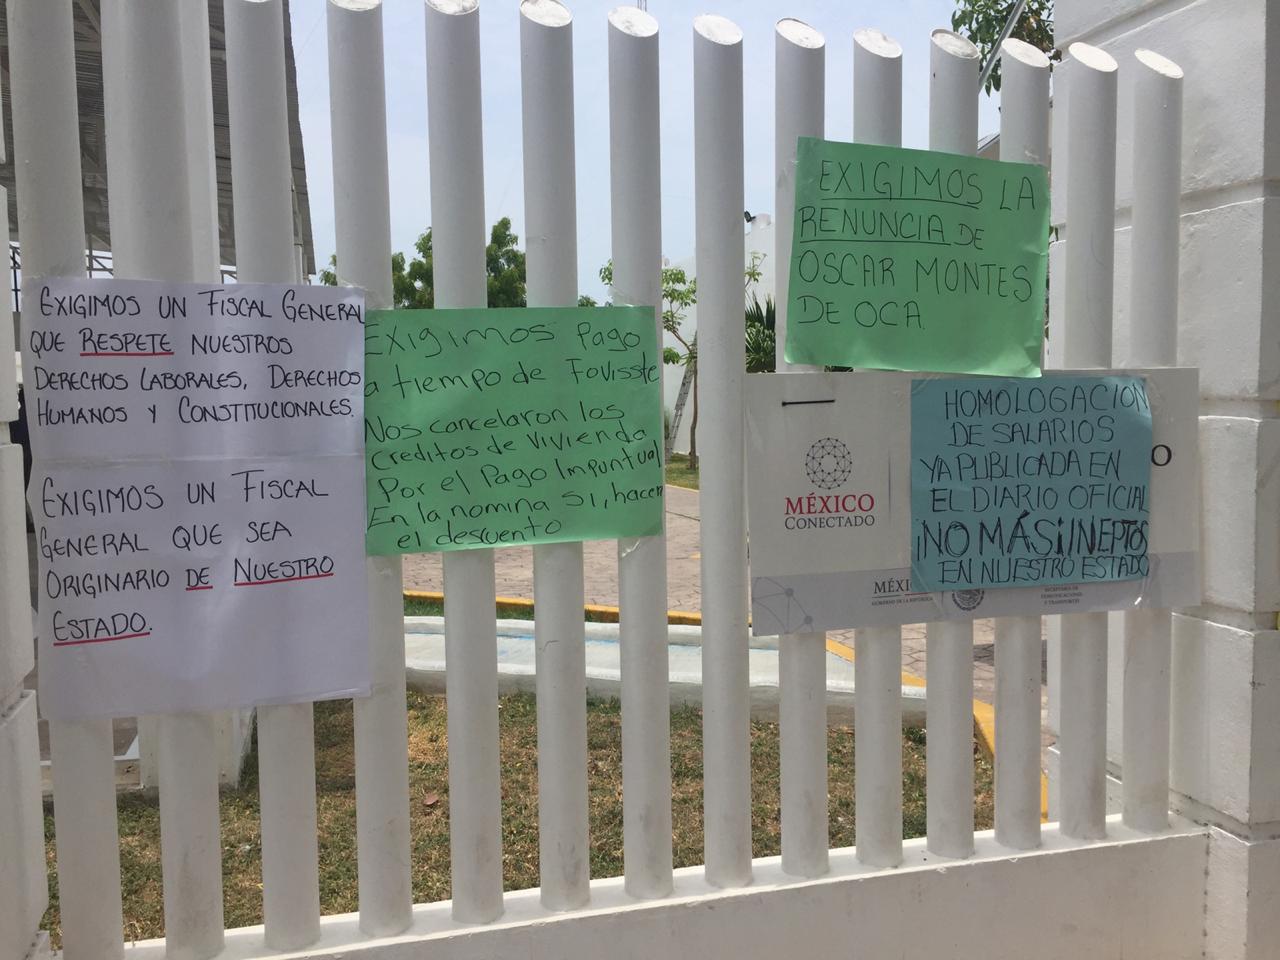 EXIGIMOS UN FISCAL GENERAL
QUE RESPETE NUESTROS
DERECHOS LABORALES, DERECHOS
HUMANOS Y CONSTITUCIONALES.
EXIGIMOS UN FISCAL
GENERAL QUE SEA
ORIGINARIO DE NUESTRO
ESTADO.
Exigimos Pago
a tiempo de Fovisste
Nos cancelaron los
creditos de Vivienda
Por el Pago Impuntual
En la nomina si, hacen
el descuento
EXIGIMOS LA
RENUNCIA DE
OSCAR MONTES
DE OCA.
HOMOLOGACION
DE SALARIOS
YA PUBLICADA EN
EL DIARIO OFICIAL
¡NO MÁS INEPTOS
EN NUESTRO ESTADO
MÉXICO
CONECTADO
GOBIERNO DE LA REPÚBLICA
SECRETARÍA DE
COMUNICACIONES
Y TRANSPORTES